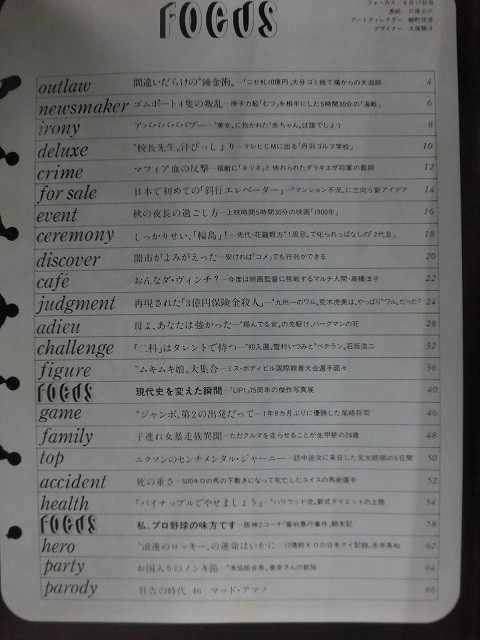 フォーカス 9月17日号
表紙 三尾公三
アートディレクター
デザイナー
FOCUS
outlaw 間違いだらけの“錬金術”―「ニセ札10億円」大分ゴミ捨て場からの大追跡 4
newsmaker ゴムボート4隻の叛乱―原子力船「むつ」を相手にした5時間30分の「海戦」 6
irony アバババババブー―“美女”に抱かれた“赤ちゃん”は誰でしょう 8
deluxe “校長先生”汗びっしょり―テレビCMに出る「丹羽ゴルフ学校」 10
crime マフィア血の反撃―宿敵に「キツネ」と怖れられたダラキエザ将軍の最期 12
for sale 日本で初めての「斜行エレベーター」―“マンション不況”に立向う新アイデア 14
event 秋の夜長の過ごし方―上映時間5時間30分の映画「1900年」 16
ceremony しっかりせい、「輪島」!―先代・花籠親方“1周忌”で叱られっぱなしの「2代目」 18
discover 闇市がよみがえった―安ければ「コメ」でも行列ができる 20
café おんなダ・ヴィンチ?―今度は映画監督に挑戦するマルチ人間・高橋洋子 22
judgment 再現された「3億円保険金殺人」―“九州一のワル”荒木虎美は、やっぱり“ワル”だった? 24
adieu 母よ、あなたは強かった―“翔んでる女”の先駆け、バーグマンの死 28
challenge 「二科」はタレントで持つ―“初入選”雪村いづみと“ベテラン”石坂浩二 32
figure “ムキムキ娘”大集合―ミス・ボディビル国際親善大会選手面々 36
FOCUS 現代史を変えた瞬間―「UPI」75周年の傑作写真展 40
game “ジャンボ”第2の出発だって―1年9カ月ぶりに優勝した尾崎将司 46
family 子連れ女暴走族異聞―ただクルマを走らせることが生甲斐の24歳 48
top ニクソンのセンチメンタル・ジャーニー―訪中途次に来日した元大統領の5日間 50
accident 死の重さ―500キロの馬の下敷きになって死亡したスイスの馬術選手 52
health 「パイナップルでやせましょう」―“ハリウッド流”新式ダイエットの上陸 54
FOCUS 私、プロ野球の味方です―阪神2コーチ「審判暴行事件」顛末記 58
hero “浪速のロッキー”の運命はいかに―12連続KOの日本タイ記録、赤井英和 62
party お国入りのノンキ節 64
parody 狂告の時代 46 マッド・アマノ 66